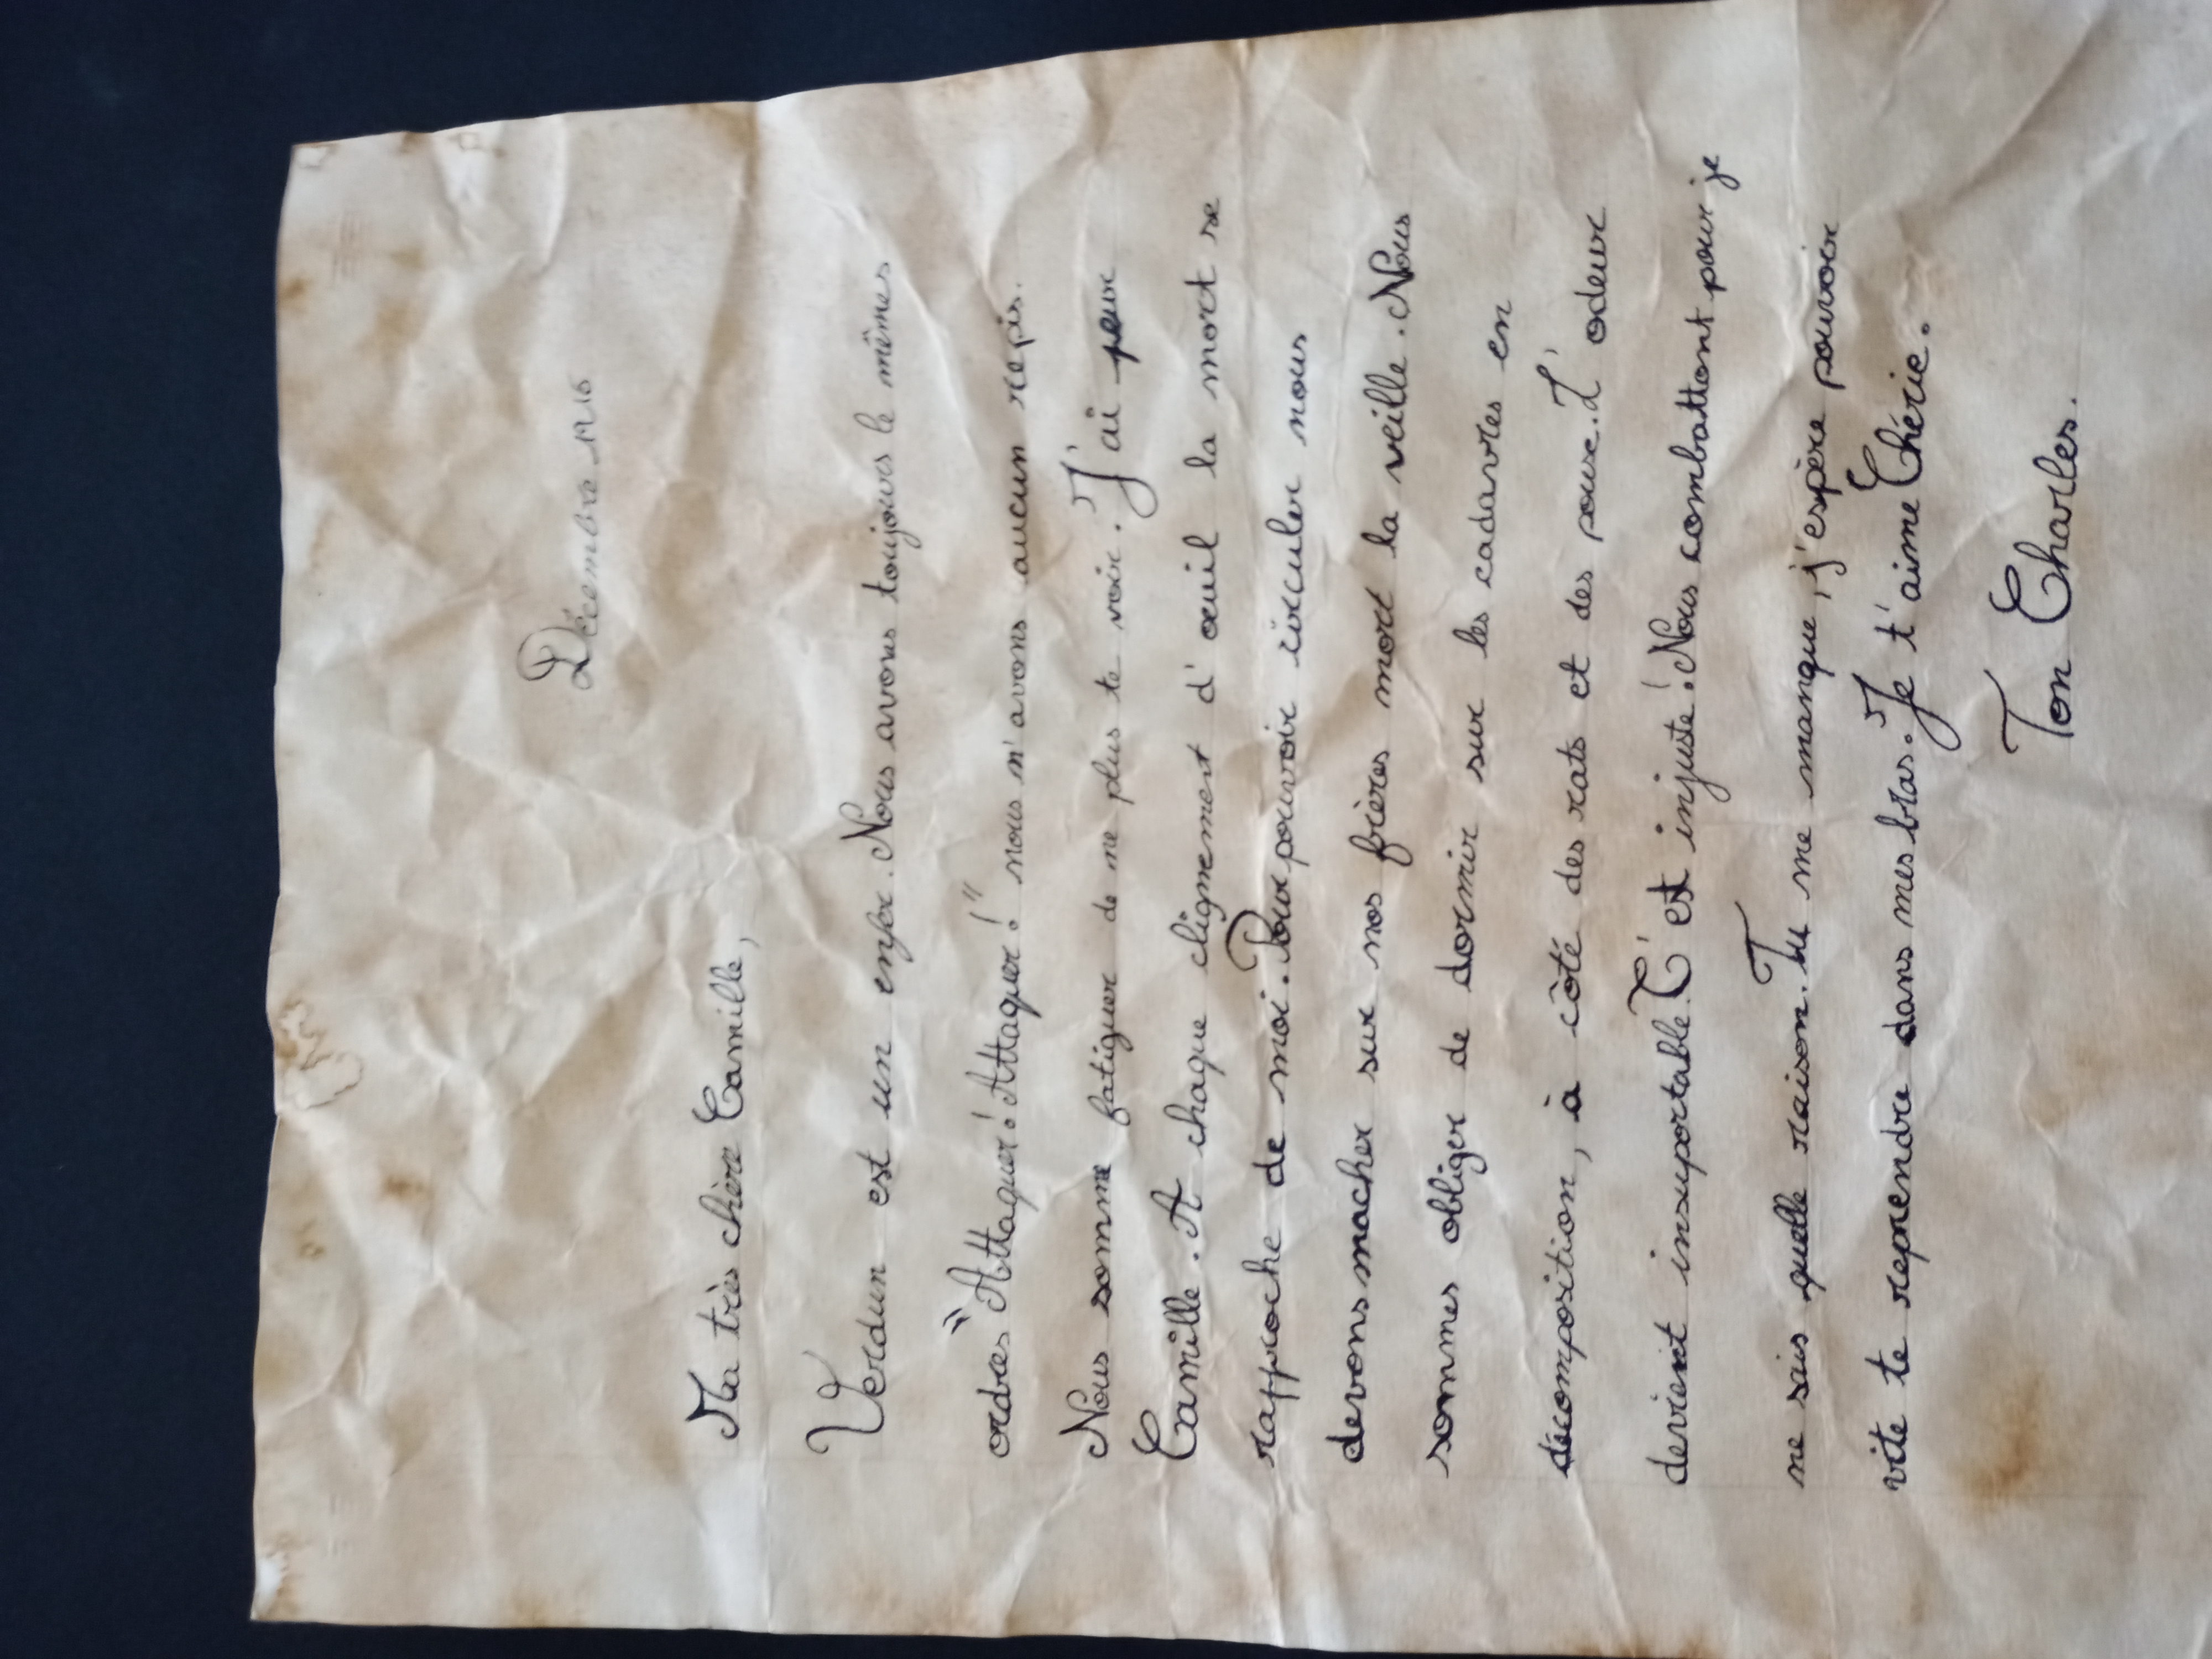 Décembre 1916
Ma très chère Camille,
Verdun est un enfer. Nous avons toujours le mêmes
ordres "Attaquer! Attaquer!" nous n'avons aucun repis.
Nous somme fatiguer de ne plus te voir. J'ai peur
Camille. A chaque clignement d'œuil la mort se
rapproche de moi. Pour pouvoir circuler nous
devons macher sur nos frères mort la veille. Nous
sommes obliger de dormir sur les cadavres en
décomposition, à côté des rats et des poux. L'odeur
devient insuportable. C'est injuste! Nous combattont pour je
ne sais quelle raison. Tu me manque, j'espère pouvoir
vite te reprendre dans mes bras. Je t'aime Chérie.
Ton Charles.